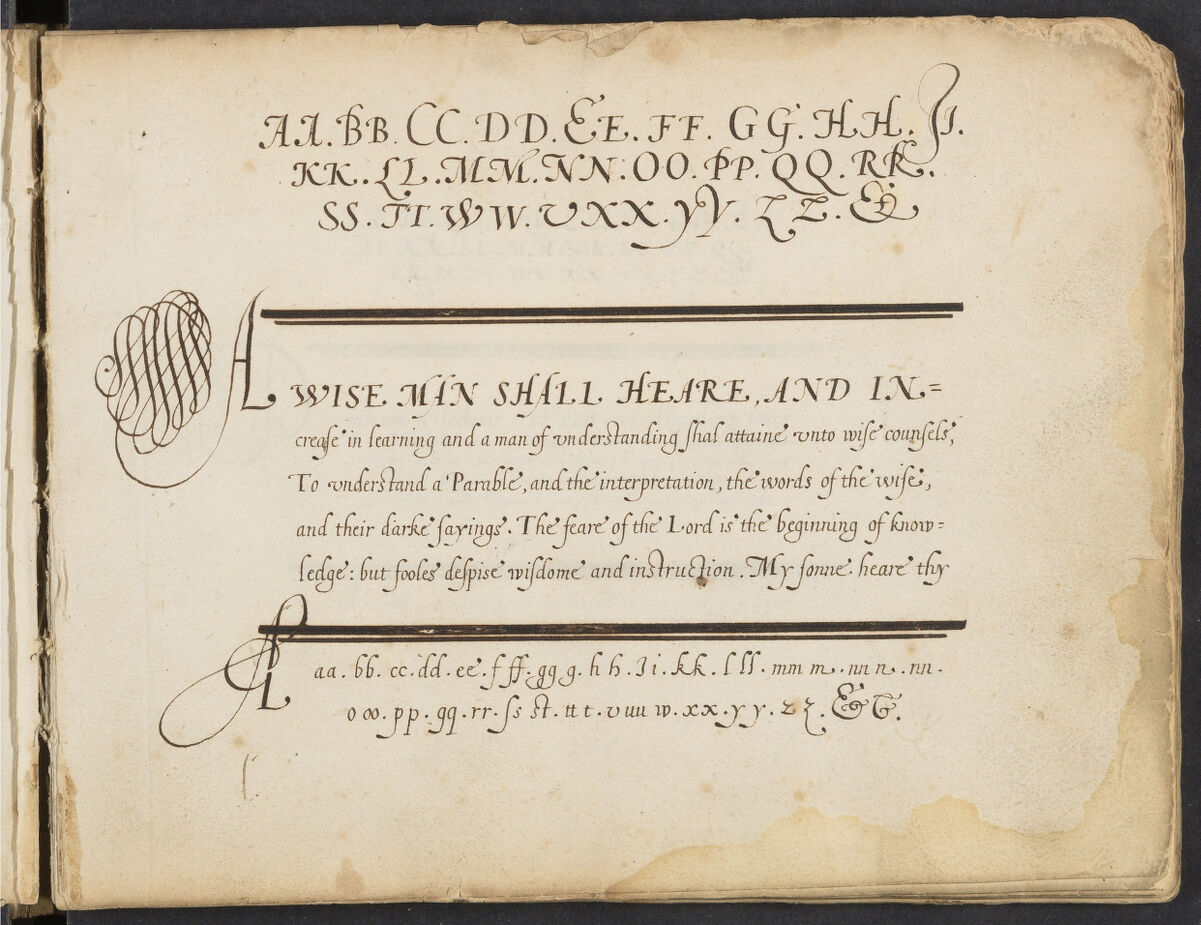 AA.BB.CC.DD.EE.FF.GG.HH.JI.
KK.LL.MM.NN:OO.PP.QQ.RR.
SS.TT.WW.VXX.YY.ZZ.&
A WISE MAN SHALL HEARE, AND IN=
crease in learning and a man of vnderstanding shal attaine vnto wise counsels,
To vnderstand a Parable, and the interpretation, the words of the wise,
and their darke sayings. The feare of the Lord is the beginning of know=
ledge: but fooles despise wisdome and instruction. My sonne heare thy
A aa.bb.cc.dd.ee.f ff.gg g.h h.Ii.kk.l ll.mm m.nn n.nn.
o oo.pp.qq.rr.ſs st.tt t.v uu w.xx.y y.z z.& &.